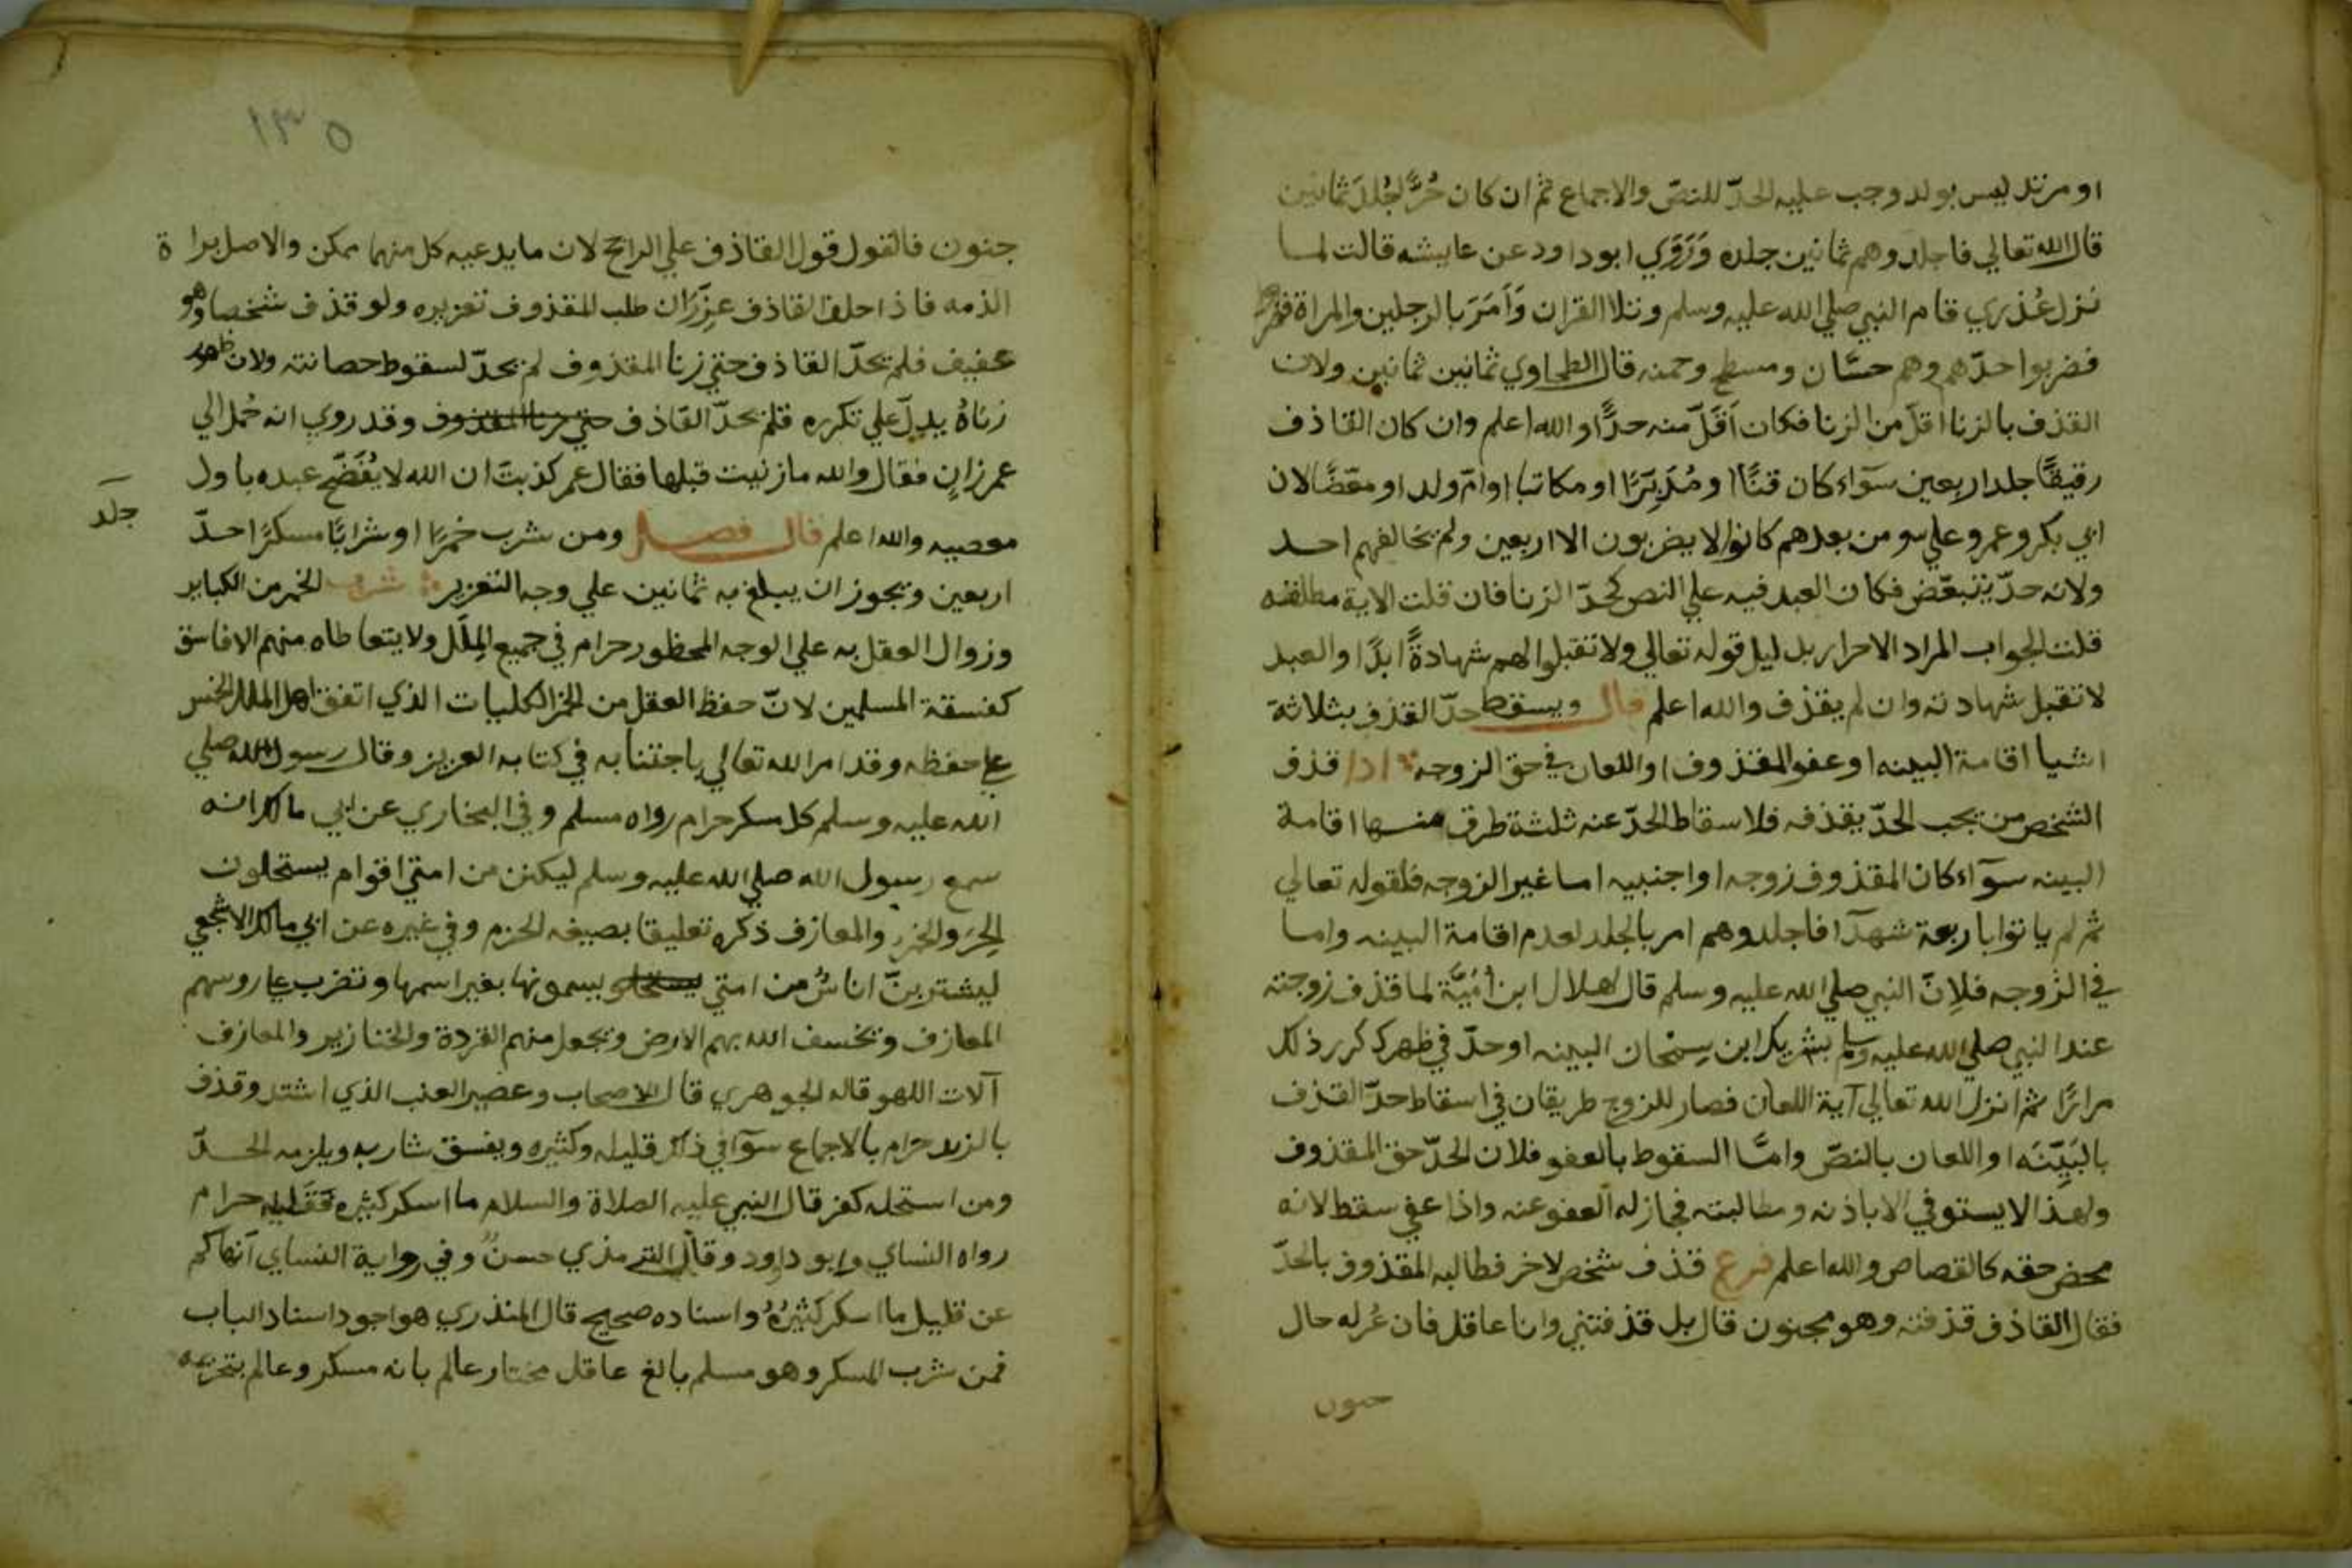 او مرتد ليس بولد وجب عليه الحدّ للنصّ والاجماع ثم ان كان حُرًّا جُلدَ ثمانين
قال الله تعالي فاجلدوهم ثمانين جلده وَرَوَي ابو داود عن عايشه قالت لما
نزل عُذري قام النبي صلي الله عليه وسلم وتلا القران وَاَمَرَ بالرجلين والمراة
فضربوا حدّهم وهم حسّان ومسطح وحمنه قال الطحاوي ثمانين ثمانين ولان
القذف بالزنا اقلّ من الزنا فكان اَقلّ منه حدًّا والله اعلم وان كان القاذف
رقيقًا جلد اربعين سوَآء كان قنًّا او مُدَبَّرًا او مكاتبا او امّ ولد او مبعّضًا لان
ابي بكر وعمر وعلي ومن بعدهم كانوا لا يضربون الا اربعين ولم يخالفهم احد
ولانه حدّ يتبعّض فكان العبد فيه علي النصف كحدّ الزنا فان قلت الاية مطلقه
قلت الجواب المراد الاحرار بدليل قوله تعالي ولا تقبلوا لهم شهادةً ابدًا والعبد
لا تقبل شهادته وان لم يقذف والله اعلم قال ويسقط حدّ القذف بثلاثة
اشيا اقامة البينه او عفو المقذوف او اللعان في حق الزوجه اذا قذف
الشخص من يجب الحدّ بقذفه فلاسقاط الحدّ عنه ثلثة طرق منها اقامة
البينه سوَآء كان المقذوف زوجه او اجنبيه اما غير الزوجه فلقوله تعالي
ثم لم ياتوا باربعة شهدآ فاجلدوهم امر بالجلد لعدم اقامة البينه واما
في الزوجه فلانّ النبي صلي الله عليه وسلم قال لهلال ابن اُمَيَّة لما قذف زوجته
عند النبي صلي الله عليه وسلم بشريك ابن سحمان البينه او حدّ في ظهرك كرر ذلك
مرارًا ثم انزل الله تعالي آية اللعان فصار للزوج طريقان في اسقاط حدّ القذف
بالبَيِّنَه او اللعان بالنصّ وامّا السقوط بالعفو فلان الحدّ حق المقذوف
ولهذا لا يستوفي الا باذنه ومطالبته فجاز له العفو عنه واذا عفي سقط لانه
محض حقه كالقصاص والله اعلم فرع قذف شخص لاخر فطالبه المقذوف بالحدّ
فقال القاذف قذفته وهو مجنون قال بل قذفتني وانا عاقل فان عُرف له حال
جنون
١٣٥
جنون فالقول قول القاذف علي الراجح لان ما يدعيه كل منهما ممكن والاصل براة
الذمه فاذا حلف القاذف عزّر ان طلب المقذوف تعزيره ولو قذف شخصا وهو
عفيف فلم يحدّ القاذف حتي زنا المقذوف لم يحدّ لسقوط حصانته ولان ظهور
زناهُ يدلّ علي تكرره فلم يحدّ القاذف حتي زنا المقذوف وقد روي انه حُمل الي
عمر زانٍ فقال والله ما زنيت قبلها فقال عمر كذبتَ ان الله لا يُفَضّح عبده باول
معصيه والله اعلم قال فصل ومن شرب خمرًا او شرابًا مسكرًا احدّ
جلد
اربعين ويجوز ان يبلغ به ثمانين علي وجه التعزير شرب الخمر من الكباير
وزوال العقل به علي الوجه المحظور حرام في جميع المِلَل ولا يتعاطاه منهم الا فاسق
كفسقة المسلمين لانّ حفظ العقل من الخمر الكليات الذي اتفق اهل الملل الخمس
علي حفظه وقد امر الله تعالي باجتنابه في كتابه العزيز وقال رسول الله صلي
الله عليه وسلم كل مسكر حرام رواه مسلم وفي البخاري عن ابي مالك انه
سمع رسول الله صلي الله عليه وسلم ليكنن من امتي اقوام يستحلون
الحِرَ والخمر والمعازف ذكره تعليقا بصيغه الجزم وفي غيره عن ابي مالك الاشجعي
ليشتربنّ اناسٌ من امتي يستحلو يسمونها بغير اسمها وتضرب علي روسهم
المعازف ويخسف الله بهم الارض ويجعل منهم القردة والخنازير والمعازف
آلات اللهو قاله الجوهري قال الاصحاب وعصير العنب الذي اشتد وقذف
بالزبد حرام بالاجماع سوآ في ذلك قليله وكثيره ويفسق شاربه ويلزمه الحدّ
ومن استحله كفر قال النبي عليه الصلاة والسلام ما اسكر كثيره فقليله حرام
رواه النساي وابو داود وقال الترمذي حسنٌ وفي رواية النساي آنهاكم
عن قليل ما اسكر كثيرُهُ واسناده صحيح قال المنذري هو اجود اسناد الباب
فمن شرب المسكر وهو مسلم بالغ عاقل مختار عالم بانه مسكر وعالم بتحريمه